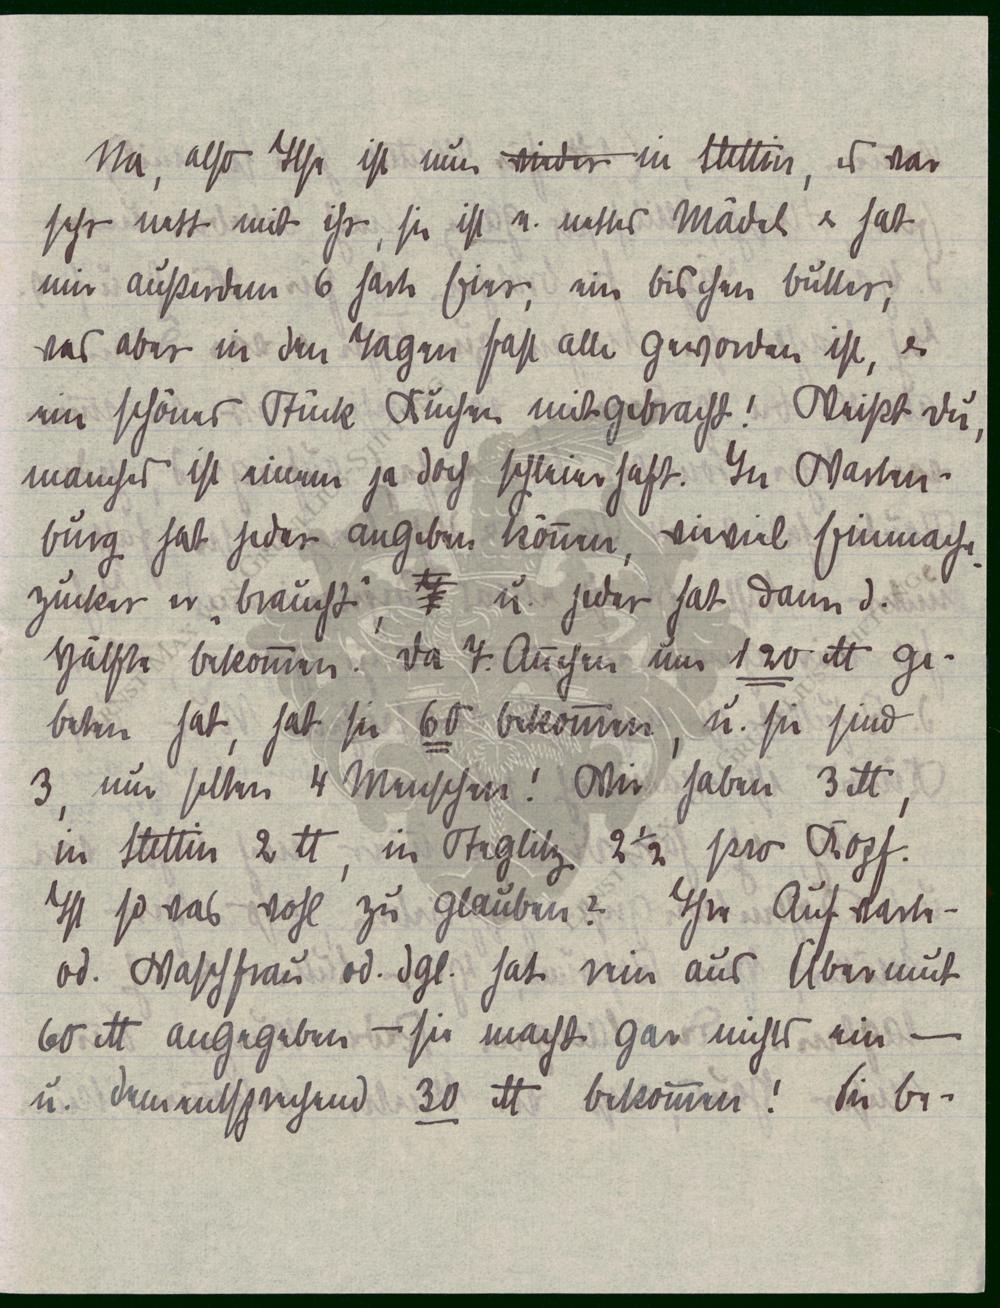 Na, also Ilse ist nun wieder in Stettin, es war
sehr nett mit ihr, sie ist n. nettes Mädel u hat
mir außerdem 6 harte Eier, ein bischen butter,
was aber in den Tagen fast alle geworden ist, u
ein schönes Stück Kuchen mitgebracht! Weißt du,
manches ist einem ja doch schleierhaft. In Warten-
burg hat jeder angeben können, wieviel Einmache-
zucker er braucht, u. jeder hat dann d.
Hälfte bekommen. Da F. um 120 ℔ ge-
beten hat, hat sie 60 bekommen, u. sie sind
3, nur selten 4 Menschen! Wir haben 3 ℔,
in Stettin 2 ℔, in Steglitz 2½ pro Kopf.
Ist so was wohl zu glauben? Ihre Aufwarte-
od. Waschfrau od. dgl. hat rein aus Übermut
60 ℔ angegeben – sie macht gar nichts ein –
u. dementsprechend 30 ℔ bekommen! Sie be-